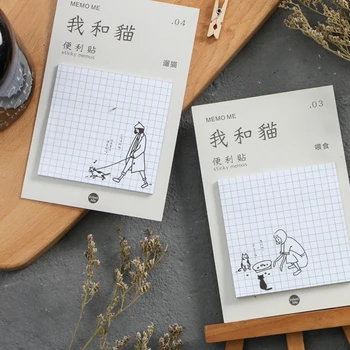 MEMO ME
.04
我和貓
便利貼
sticky memos
遛貓
MEMO ME
.03
我和貓
便利貼
sticky memos
喂食